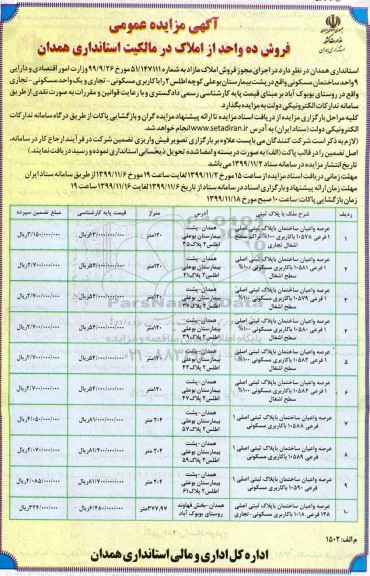 آگهی مزایده عمومی
فروش ده واحد از املاک در مالکیت استانداری همدان
استانداری همدان در نظر دارد در اجرای مجوز فروش املاک مازاد به شماره ۵۱/۱۴۷۱۱۱ مورخ ۹۹/۹/۲۶ وزارت امور اقتصادی و دارایی
۹ واحد ساختمان مسکونی واقع در پشت بیمارستان بوعلی کوچه اطلس ۲ را با کاربری مسکونی - تجاری و یک واحد مسکونی - تجاری
واقع در روستای یوبوک آباد بر مبنای قیمت پایه کارشناسی رسمی دادگستری و با رعایت قوانین و مقررات به صورت نقدی از طریق
سامانه تدارکات الکترونیکی دولت به مزایده بگذارد.
کلیه مراحل برگزاری مزایده از دریافت اسناد مزایده تا ارائه پیشنهاد مزایده گران و بازگشایی پاکات از طریق درگاه سامانه تدارکات
الکترونیکی دولت (ستاد ایران) به آدرس www.setadiran.ir انجام خواهد شد.
(لازم به ذکر است شرکت کنندگان می بایست علاوه بر بارگزاری تصویر فیش واریزی تضمین شرکت در فرآیند ارجاع کار در سامانه،
اصل تضمین را در قالب پاکت (الف) به صورت دربسته و امضا شده تحویل ذیحسابی استانداری نموده و رسید دریافت نمایند.)
تاریخ انتشار مزایده در سامانه ستاد ۱۳۹۹/۱۱/۲ می باشد.
مهلت زمانی دریافت اسناد مزایده از ساعت ۱۵ مورخ ۱۳۹۹/۱۱/۲ لغایت ساعت ۱۹ مورخ ۱۳۹۹/۱۱/۶ از طریق سامانه ستاد ایران
مهلت زمان ارائه پیشنهاد و بارگزاری اسناد در سامانه ستاد از تاریخ ۱۳۹۹/۱۱/۶ لغایت ۱۳۹۹/۱۱/۱۶ ساعت ۱۹
زمان بازگشایی پاکات: ساعت ۱۰ صبح مورخ ۱۳۹۹/۱۱/۱۸
ردیف شرح ملک با پلاک ثبتی آدرس متراژ قیمت پایه کارشناسی مبلغ تضمین سپرده
۱ عرصه و اعیان ساختمان با پلاک ثبتی اصلی ۱ فرعی ۱۰۵۷۸ با کاربری ۱۰۰% تراکم سطح اشغال تجاری همدان - پشت بیمارستان بوعلی اطلس ۲ پلاک ۳۵ ۱۲۰متر ۶۳/۰۰۰/۰۰۰/۰۰۰ریال ۳/۱۵۰/۰۰۰/۰۰۰
۲ عرصه و اعیان ساختمان با پلاک ثبتی اصلی ۱ فرعی ۱۰۵۸۱ با کاربری مسکونی ۱۰۰% سطح اشغال همدان - پشت بیمارستان بوعلی اطلس ۲ پلاک ۴۱ ۱۲۰متر ۵۴/۰۰۰/۰۰۰/۰۰۰ریال ۲/۷۰۰/۰۰۰/۰۰۰
۳ عرصه و اعیان ساختمان با پلاک ثبتی اصلی ۱ فرعی ۱۰۵۷۹ با کاربری مسکونی ۱۰۰% سطح اشغال همدان - پشت بیمارستان بوعلی اطلس ۲ پلاک ۳۷ ۱۲۰متر ۵۴/۰۰۰/۰۰۰/۰۰۰ریال ۲/۷۰۰/۰۰۰/۰۰۰
۴ عرصه و اعیان ساختمان با پلاک ثبتی اصلی ۱ فرعی ۱۰۵۸۰ با کاربری مسکونی ۱۰۰% سطح اشغال همدان - پشت بیمارستان بوعلی اطلس ۲ پلاک ۳۹ ۱۲۰متر ۵۴/۰۰۰/۰۰۰/۰۰۰ریال ۲/۷۰۰/۰۰۰/۰۰۰
۵ عرصه و اعیان ساختمان با پلاک ثبتی اصلی ۱ فرعی ۱۰۵۸۲ با کاربری مسکونی ۱۰۰% سطح اشغال همدان - پشت بیمارستان بوعلی اطلس ۲ پلاک ۴۳ ۱۲۰متر ۵۴/۰۰۰/۰۰۰/۰۰۰ریال ۲/۷۰۰/۰۰۰/۰۰۰
۶ عرصه و اعیان ساختمان با پلاک ثبتی اصلی سطح اشغال همدان - پشت بیمارستان بوعلی اطلس ۲ پلاک ۴۷ ۱۲۰متر ۵۴/۰۰۰/۰۰۰/۰۰۰ریال ۲/۷۰۰/۰۰۰/۰۰۰
۷ عرصه و اعیان ساختمان با پلاک ثبتی اصلی ۱ فرعی ۱۰۵۸۸ با کاربری مسکونی همدان - پشت بیمارستان بوعلی اطلس ۲ پلاک ۵۷ ۲۰۴ متر ۸۱/۰۰۰/۰۰۰/۰۰۰ریال ۴/۰۵۰/۰۰۰/۰۰۰
۸ عرصه و اعیان ساختمان با پلاک ثبتی اصلی ۱ فرعی ۱۰۵۸۹ با کاربری مسکونی همدان - پشت بیمارستان بوعلی اطلس ۲ پلاک ۵۹ ۲۰۴ متر ۸۱/۴۰۰/۰۰۰/۰۰۰ریال ۴/۰۷۰/۰۰۰/۰۰۰
۹ عرصه و اعیان ساختمان با پلاک ثبتی اصلی ۱ فرعی ۱۰۵۹۰ با کاربری مسکونی همدان - پشت بیمارستان بوعلی اطلس ۲ پلاک ۶۱ ۲۰۴ متر ۸۱/۷۰۰/۰۰۰/۰۰۰ریال ۴/۰۸۵/۰۰۰/۰۰۰
۱۰ عرصه و اعیان ساختمان با پلاک ثبتی اصلی ۱۴۸ فرعی ۱۰۱۸ با کاربری مسکونی - تجاری همدان - بخش قهاوند روستای یوبوک آباد ۳۷۷,۹۷متر ۶/۴۸۰/۰۰۰/۰۰۰ریال ۳۲۴/۰۰۰/۰۰۰
م الف: ۱۵۰۲
اداره کل اداری و مالی استانداری همدان